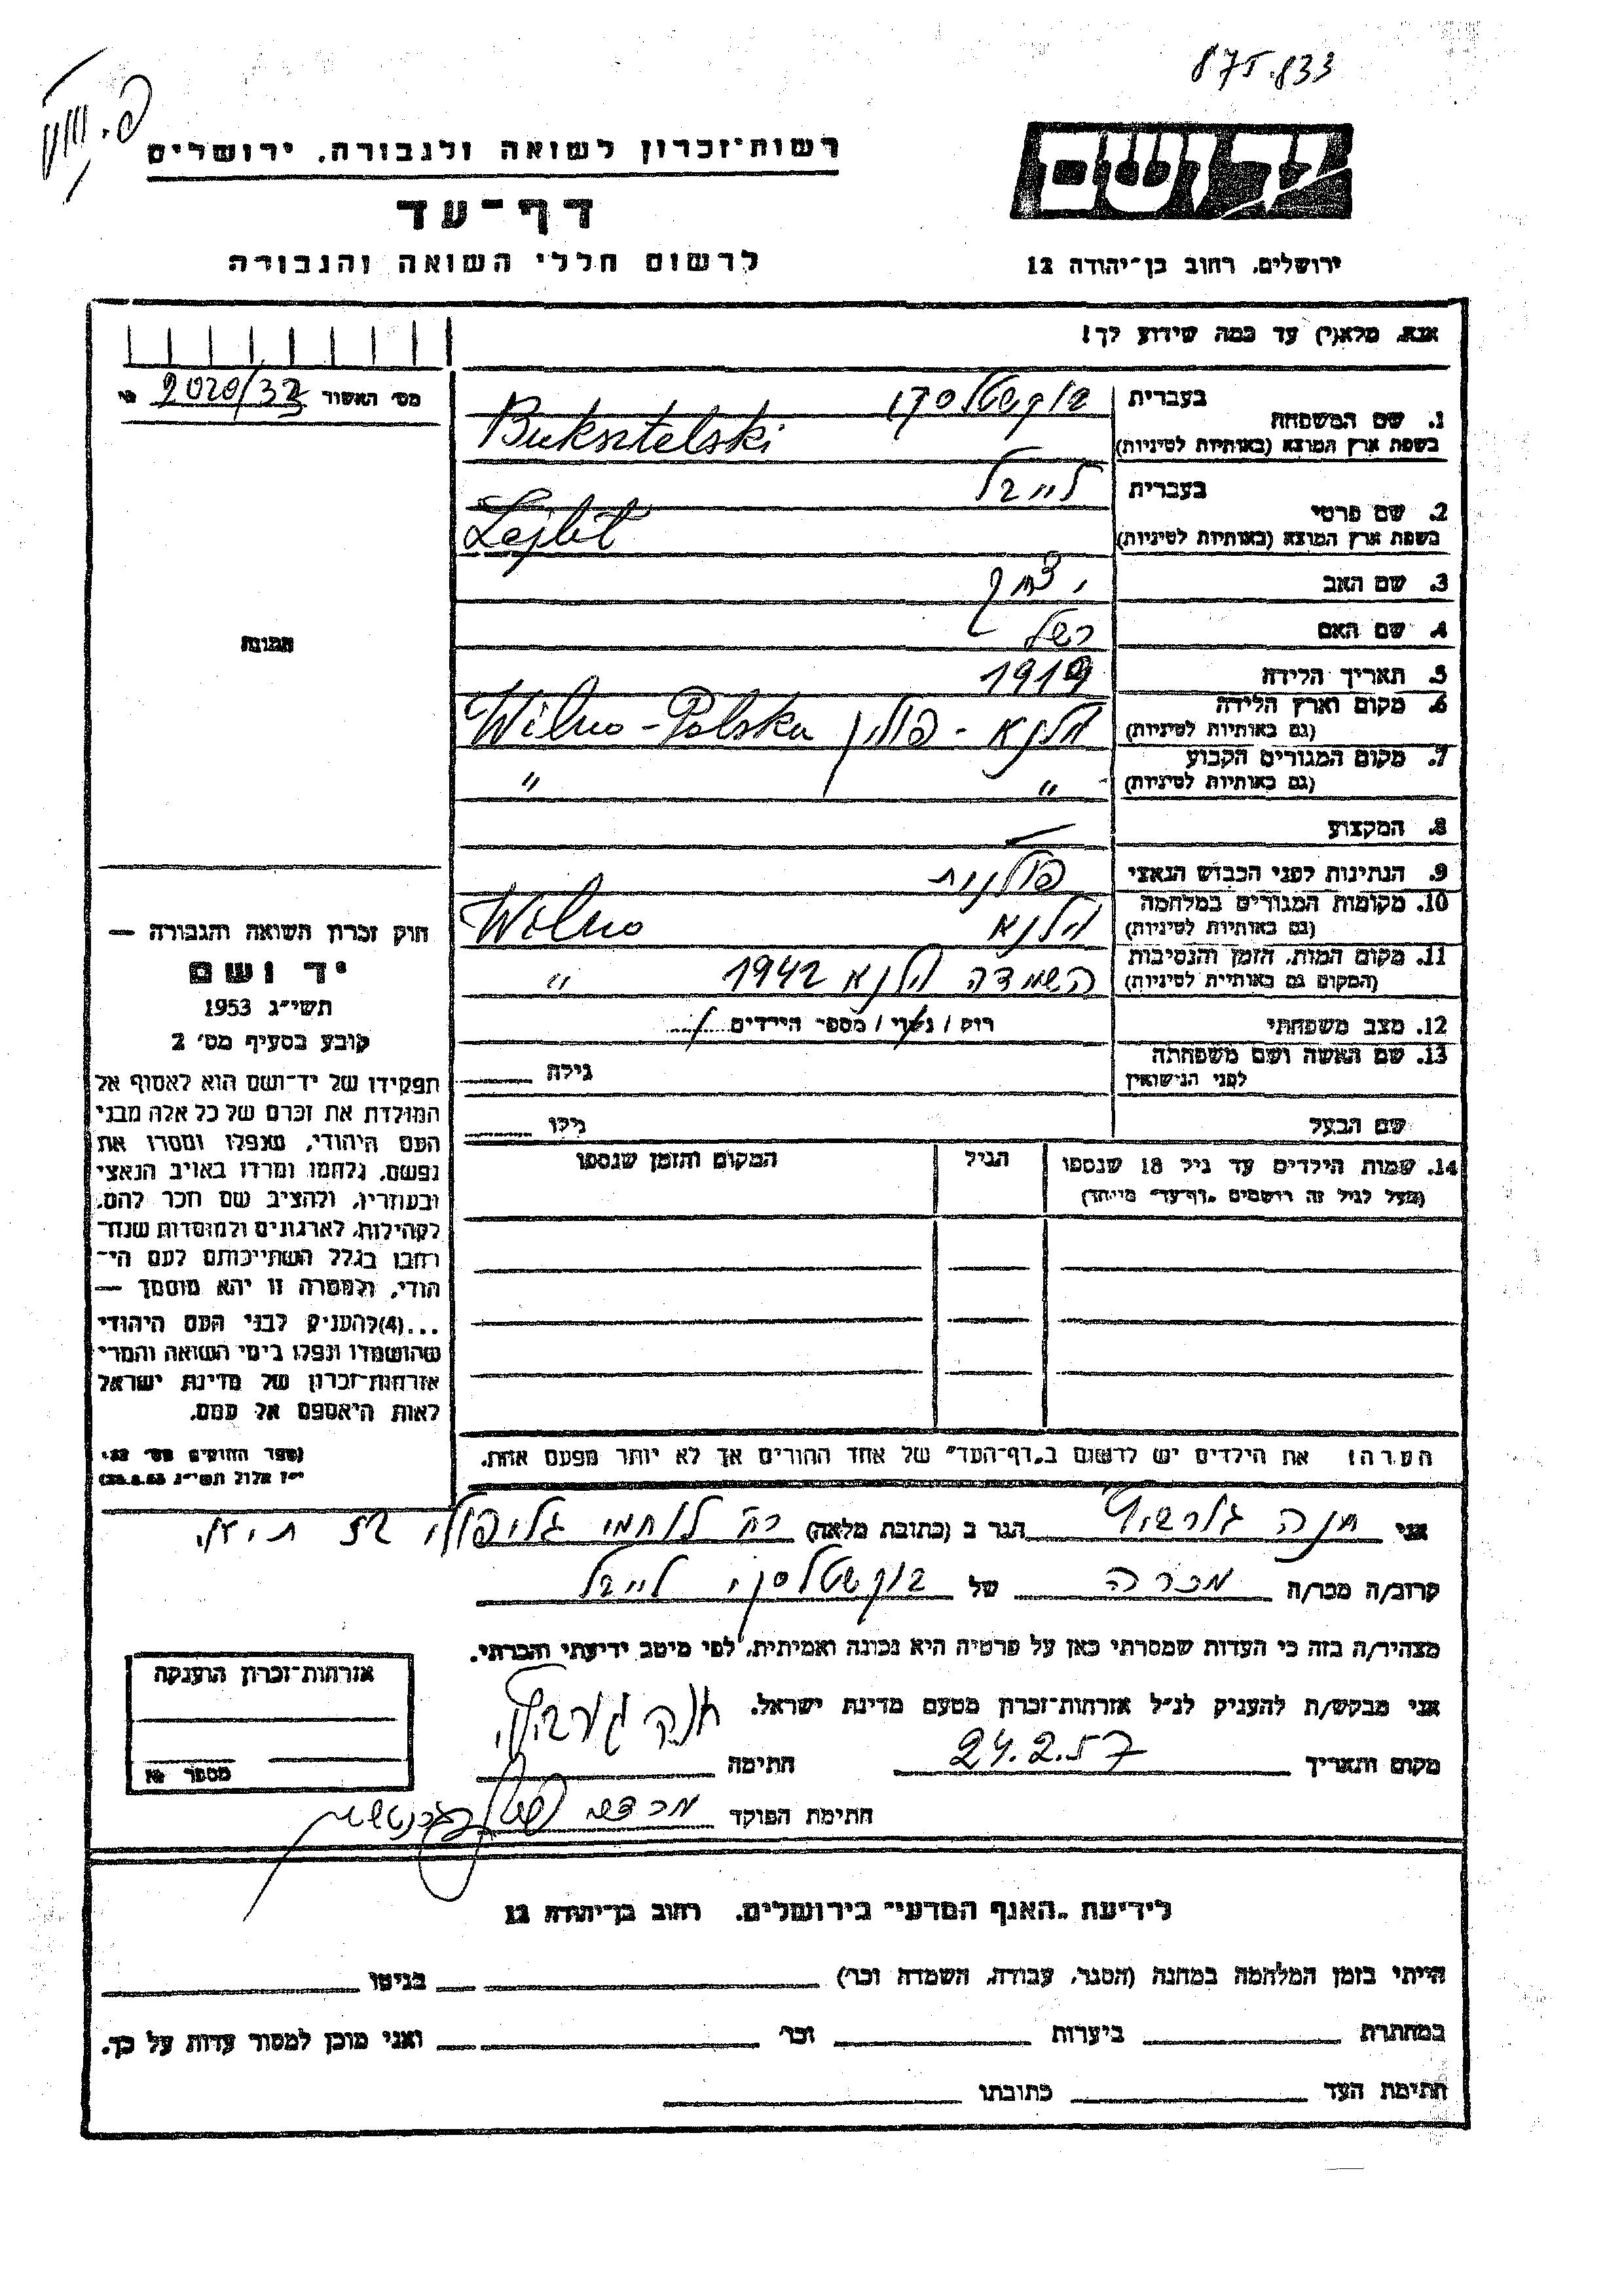 875.833
רשות־זכרון לשואה ולגבורה, ירושלים
יד ושם
דף־עד
לרשום חללי השואה והגבורה
ירושלים, רחוב בן־יהודה 12
אנא, מלא(י) עד כמה שידוע לך!
מס׳ האשור 2020/32
1. שם המשפחה בעברית בוקשטלסקי
בשפת ארץ המוצא (באותיות לטיניות) Buksztelski
2. שם פרטי בעברית לייבל
בשפת ארץ המוצא (באותיות לטיניות)
3. שם האב יצחק
4. שם האם רשל
5. תאריך הלידה 1919
6. מקום וארץ הלידה (גם באותיות לטיניות) וילנא - פולין Wilno-Polska
7. מקום המגורים הקבוע (גם באותיות לטיניות) " "
8. המקצוע
9. הנתינות לפני הכבוש הנאצי פולנית
10. מקומות המגורים במלחמה (גם באותיות לטיניות) וילנא Wilno
11. מקום המות, הזמן והנסיבות (המקום גם באותיות לטיניות) השמדה וילנא 1942 "
12. מצב משפחתי רווק / נשוי / מספר הילדים
13. שם האשה ושם משפחתה לפני הנישואין גילה
שם הבעל גילו
14. שמות הילדים עד גיל 18 שנספו הגיל המקום והזמן שנספו
(מעל לגיל זה רושמים „דף־עד״ מיוחד)
הערה: את הילדים יש לרשום ב„דף־העד״ של אחד ההורים אך לא יותר מפעם אחת.
תמונה
חוק זכרון השואה והגבורה —
יד ושם
תשי״ג 1953
קובע בסעיף מס׳ 2
תפקידו של יד־ושם הוא לאסוף אל
המולדת את זכרם של כל אלה מבני
העם היהודי, שנפלו ומסרו את
נפשם, נלחמו ומרדו באויב הנאצי
ובעוזריו, ולהציב שם וזכר להם,
לקהילות, לארגונים ולמוסדות שנח־
רבו בגלל השתייכותם לעם הי־
הודי, ולמטרה זו יהא מוסמך —
...(4)להעניק לבני העם היהודי
שהושמדו ונפלו בימי השואה והמרי
אזרחות־זכרון של מדינת ישראל
לאות היאספם אל עמם.
(ספר החוקים מס׳ 132,
י״ז אלול תשי״ג 28.8.53)
אני חנה הגר ב (כתובת מלאה) רח לוחמי גליפולי 52 ת"א.
קרוב/ה מכר/ה מכרה של בוקשטלסקי לייבל
מצהיר/ה בזה כי העדות שמסרתי כאן על פרטיה היא נכונה ואמיתית, לפי מיטב ידיעתי והכרתי.
אני מבקש/ת להעניק לנ״ל אזרחות־זכרון מטעם מדינת ישראל.
מקום ותאריך 24.2.57 חתימה חנה
חתימת הפוקד
אזרחות־זכרון הוענקה
מספר
לידיעת „האגף המדעי״ בירושלים, רחוב בן־יהודה 12
הייתי בזמן המלחמה במחנה (הסגר, עבודה, השמדה וכר׳) בגיטו
במחתרת ביערות וכר׳ ואני מוכן למסור עדות על כך.
חתימת העד כתובתו